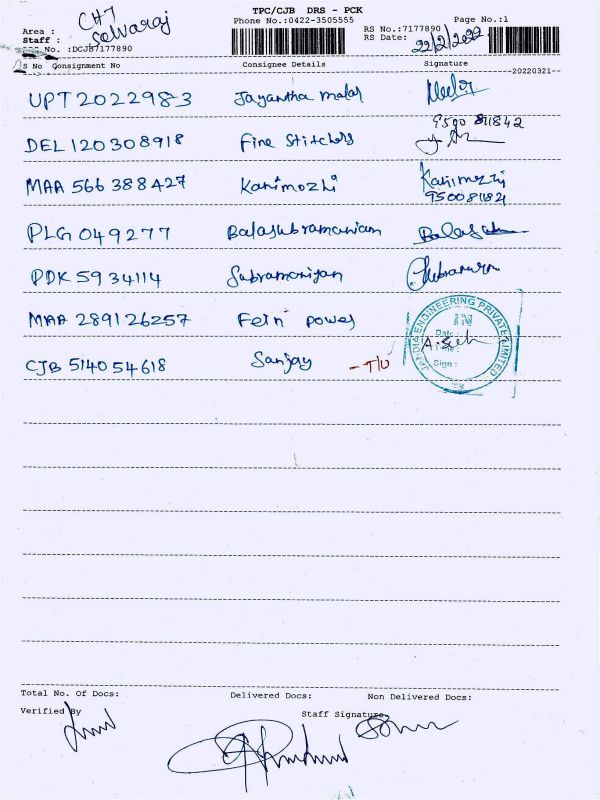 TPC/CJB DRS - PCK
CH7
Area :
Phone No.:0422-3505555
Page No.:1
Staff : Selvaraj
RS No.:7177890
RS Date: 22/2/2022
DRS No. :DCJB7177890
S No Consignment No Consignee Details Signature
20220321
UPT 2022983 Jayantha malar
DEL 120308918 Fine Stitchers 9500 811842
MAA 566 388427 Kanimozhi Kanimozhi
950081184
PLG 049277 Balasubramaniam
PDK 5934114 Subramaniyan
MAA 289126257 Fein power
JAI DIA ENGINEERING PRIVATE LIMITED
IN
Date :
Time :
Sign :
CJB 514054618 Sanjay - T/U
Total No. Of Docs: Delivered Docs: Non Delivered Docs:
Verified By
Staff Signature